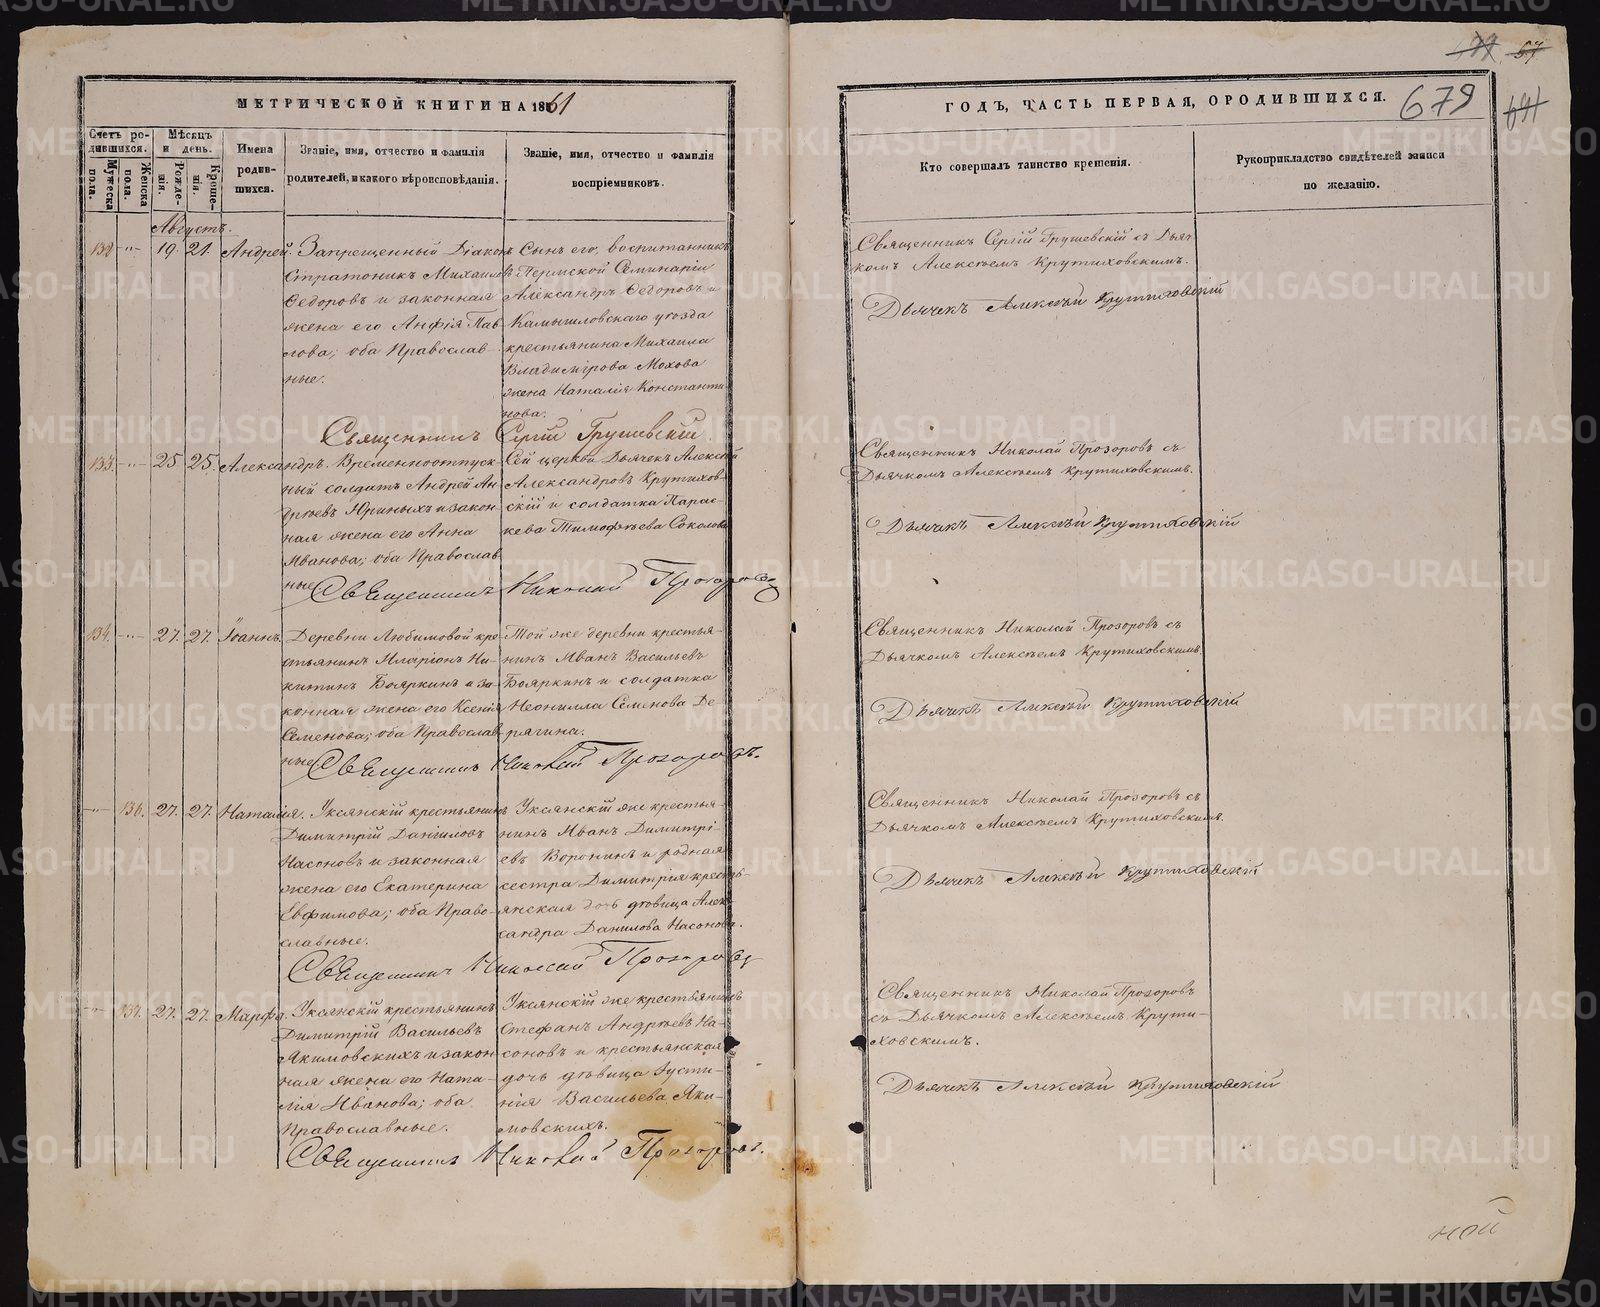 МЕТРИЧЕСКОЙ КНИГИ НА 1861
Счетъ ро-
дившихся.
Мужеска
пола.
Женска
пола.
Мѣсяцъ
и день.
Рожде-
нія.
Креще-
нія.
Имена
родив-
шихся.
Званіе, имя, отчество и фамилія
родителей, и какого вѣроисповѣданія.
Званіе, имя, отчество и фамилія
воспріемниковъ.
Августъ.
132 -"- 19. 21. Андрей.
Запрещенный Діаконъ
Стратоникъ Михаиловъ
Ѳедоровъ и законная
жена его Анфія Пав-
лова; оба Православ-
ные.
Сынъ его, воспитанникъ
Пермской Семинаріи
Александръ Ѳедоровъ и
Камышловскаго уѣзда
крестьянина Михаила
Владимірова Мохова
жена Наталія Константи-
нова.
Священникъ Сергій Грушевскій.
133. -"- 25 25. Александръ.
Временноотпуск-
ный солдатъ Андрей Ан-
дреевъ Юриныхъ и закон-
ная жена его Анна
Иванова; оба Православ-
ные.
Сей церкви Дьячекъ Алексѣй
Александровъ Крутихов-
скій и солдатка Парас-
кева Тимофѣева Соколова
Священникъ Николай Прозоровъ
134. -"- 27. 27. Іоаннъ.
Деревни Любимовой кре-
стьянинъ Иларіонъ Ни-
китинъ Бояркинъ и за-
конная жена его Ксенія
Семенова; оба Православ-
ные.
Той же деревни крестья-
нинъ Иванъ Васильевъ
Бояркинъ и солдатка
Неонилла Семенова Де
рягина.
Священникъ Николай Прозоровъ.
-"- 136. 27. 27. Наталія.
Уксянскій крестьянинъ
Димитрій Даниловъ
Насоновъ и законная
жена его Екатерина
Евфимова; оба Право-
славные.
Уксянскій же крестья-
нинъ Иванъ Димитрі-
евъ Воронинъ и родная
сестра Димитрія кресть-
янская дочь дѣвица Алек-
сандра Данилова Насонова.
Священникъ Николай Прозоровъ
-"- 137. 27. 27. Марфа.
Уксянскій крестьянинъ
Димитрій Васильевъ
Якимовскихъ и закон-
ная жена его Ната-
лія Иванова; оба
Православные.
Уксянскій же крестьянинъ
Стефанъ Андреевъ На-
соновъ и крестьянская
дочь дѣвица Іусти-
нія Васильева Яки-
мовскихъ.
Священникъ Николай Прозоровъ.
57
ГОДЪ, ЧАСТЬ ПЕРВАЯ, О РОДИВШИХСЯ.
679
Кто совершалъ таинство крещенія.
Рукоприкладство свидѣтелей записи
по желанію.
Священникъ Сергій Грушевскій съ Дьяч-
комъ Алексѣемъ Крутиховскимъ.
Дьячекъ Алексѣй Крутиховскій
Священникъ Николай Прозоровъ съ
Дьячкомъ Алексѣемъ Крутиховскимъ.
Дьячекъ Алексѣй Крутиховскій
Священникъ Николай Прозоровъ съ
Дьячкомъ Алексѣемъ Крутиховскимъ.
Дьячекъ Алексѣй Крутиховскій
Священникъ Николай Прозоровъ съ
Дьячкомъ Алексѣемъ Крутиховскимъ.
Дьячекъ Алексѣй Крутиховскій
Священникъ Николай Прозоровъ
съ Дьячкомъ Алексѣемъ Крути-
ховскимъ.
Дьячекъ Алексѣй Крутиховскій
ной
METRIKI.GASO-URAL.RU